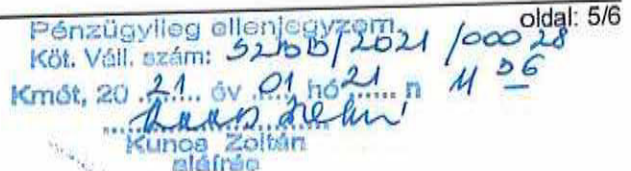 oldal: 5/6
Pénzügyileg ellenjegyzem
Köt. Váll. szám: /2021 /000 28
Kmőt, 20 21 év 01 hó 21 n 11 56
Kunos Zoltán
aláírás